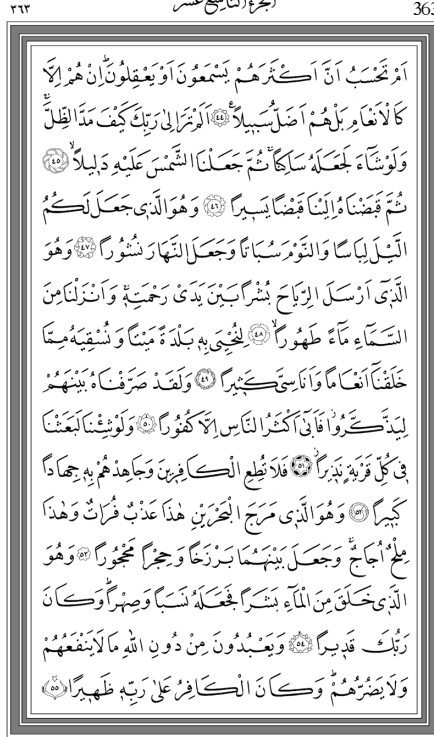 ٣٦٣ الجزء التاسع عشر 363
اَمْ تَحْسَبُ اَنَّ اَكْثَرَهُمْ يَسْمَعُونَ اَوْ يَعْقِلُونَۜ اِنْ هُمْ اِلَّا
كَالْاَنْعَامِ بَلْ هُمْ اَضَلُّ سَبِيلاًۚ ﴿٤٤﴾ اَلَمْ تَرَ اِلٰى رَبِّكَ كَيْفَ مَدَّ الظِّلَّۚ
وَلَوْ شَٓاءَ لَجَعَلَهُ سَاكِناًۚ ثُمَّ جَعَلْنَا الشَّمْسَ عَلَيْهِ دَلِيلاًۙ ﴿٤٥﴾
ثُمَّ قَبَضْنَاهُ اِلَيْنَا قَبْضاً يَسِيراً ﴿٤٦﴾ وَهُوَ الَّذِي جَعَلَ لَكُمُ
الَّيْلَ لِبَاساً وَالنَّوْمَ سُبَاتاً وَجَعَلَ النَّهَارَ نُشُوراً ﴿٤٧﴾ وَهُوَ
الَّذِٓي اَرْسَلَ الرِّيَاحَ بُشْراً بَيْنَ يَدَيْ رَحْمَتِهِۚ وَاَنْزَلْنَا مِنَ
السَّمَٓاءِ مَٓاءً طَهُوراًۙ ﴿٤٨﴾ لِنُحْيِيَ بِهِ بَلْدَةً مَيْتاً وَنُسْقِيَهُ مِمَّا
خَلَقْنَٓا اَنْعَاماً وَاَنَاسِيَّ كَثِيراً ﴿٤٩﴾ وَلَقَدْ صَرَّفْنَاهُ بَيْنَهُمْ
لِيَذَّكَّرُواۘ فَاَبٰٓى اَكْثَرُ النَّاسِ اِلَّا كُفُوراً ﴿٥٠﴾ وَلَوْ شِئْنَا لَبَعَثْنَا
فِي كُلِّ قَرْيَةٍ نَذِيراًۘ ﴿٥١﴾ فَلَا تُطِعِ الْكَافِرِينَ وَجَاهِدْهُمْ بِهِ جِهَاداً
كَبِيراً ﴿٥٢﴾ وَهُوَ الَّذِي مَرَجَ الْبَحْرَيْنِ هٰذَا عَذْبٌ فُرَاتٌ وَهٰذَا
مِلْحٌ اُجَاجٌۚ وَجَعَلَ بَيْنَهُمَا بَرْزَخاً وَحِجْراً مَحْجُوراً ﴿٥٣﴾ وَهُوَ
الَّذِي خَلَقَ مِنَ الْمَٓاءِ بَشَراً فَجَعَلَهُ نَسَباً وَصِهْراًۜ وَكَانَ
رَبُّكَ قَدِيراً ﴿٥٤﴾ وَيَعْبُدُونَ مِنْ دُونِ اللّٰهِ مَا لَا يَنْفَعُهُمْ
وَلَا يَضُرُّهُمْۜ وَكَانَ الْكَافِرُ عَلٰى رَبِّهِ ظَهِيراً ﴿٥٥﴾